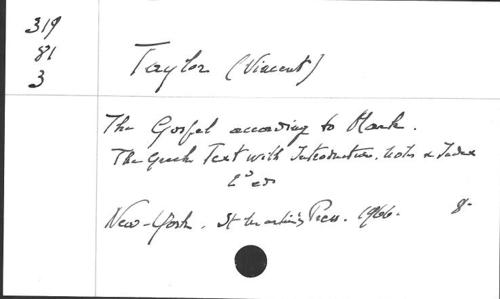 319
81
3
Taylor (Vincent)
The Gospel according to Mark.
The Greek Text with Introduction, Notes & Index
2° ed
New-York. St Martin's Press. 1966. 8°